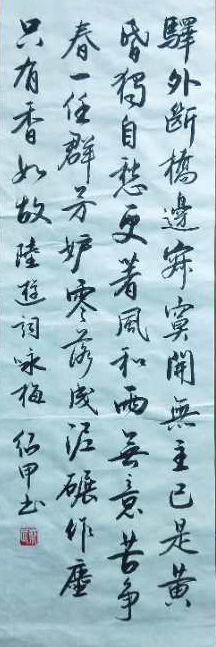 驛外斷橋邊寂寞開無主已是黃
昏獨自愁更著風和雨無意苦争
春一任群芳妒零落成泥碾作塵
只有香如故陸游詞咏梅 紹甲书